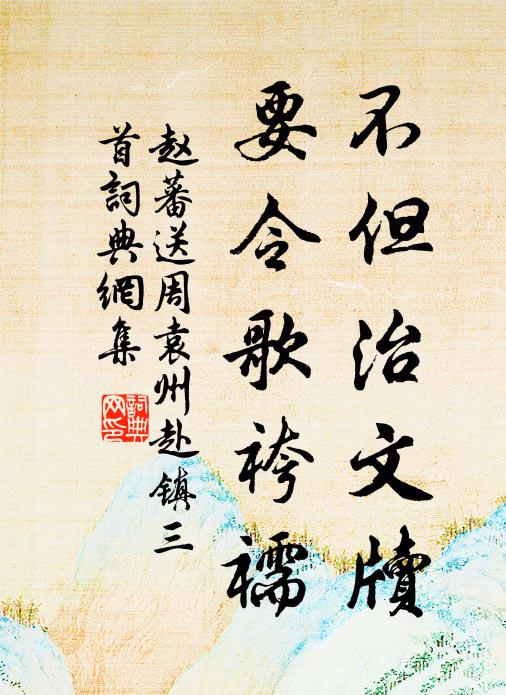 不但治文牘
要令歌袴襦
赵蕃送周袁州赴镇三
首詞典網集
詞典
网印